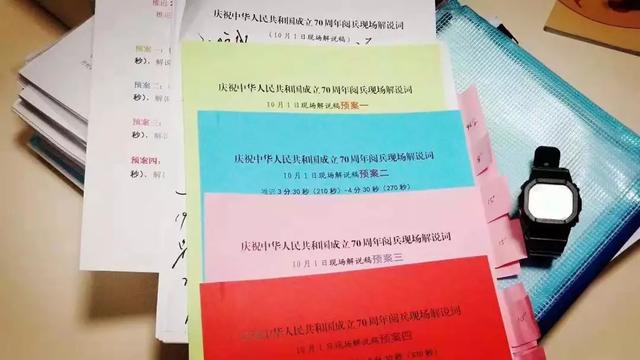 预案一：
秒）、解说
预案二：
秒）、解说
预案三：
秒）、解
预案四：
秒）、解
庆祝中华人民共和国成立70周年阅兵现场解说词
（10月1日现场解说稿）
庆祝中华人民共和国成立70周年阅兵现场解说词
10月1日现场解说稿预案一
庆祝中华人民共和国成立70周年阅兵现场解说词
10月1日现场解说稿预案二
推迟3分30秒（210秒）-4分30秒（270秒）
庆祝中华人民共和国成立70周年阅兵现场解说词
10月1日现场解说稿预案三
庆祝中华人民共和国成立70周年阅兵现场解说词
10月1日现场解说稿预案四